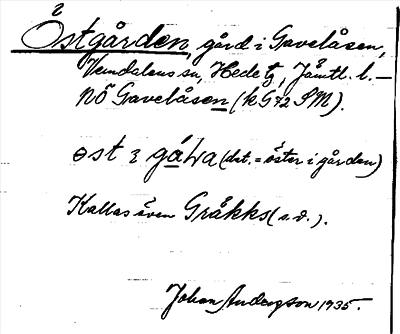 Östgården, gård i Gavelåsen,
Vemdalens sn, Hede tg, Jämtl. l. –
NÖ Gavelåsen (k G72 SM).
øst ɜ gáLa (dvt. = öster i gården)
Kallas även Gråkks (s. d.).
Johan Anderson 1935.